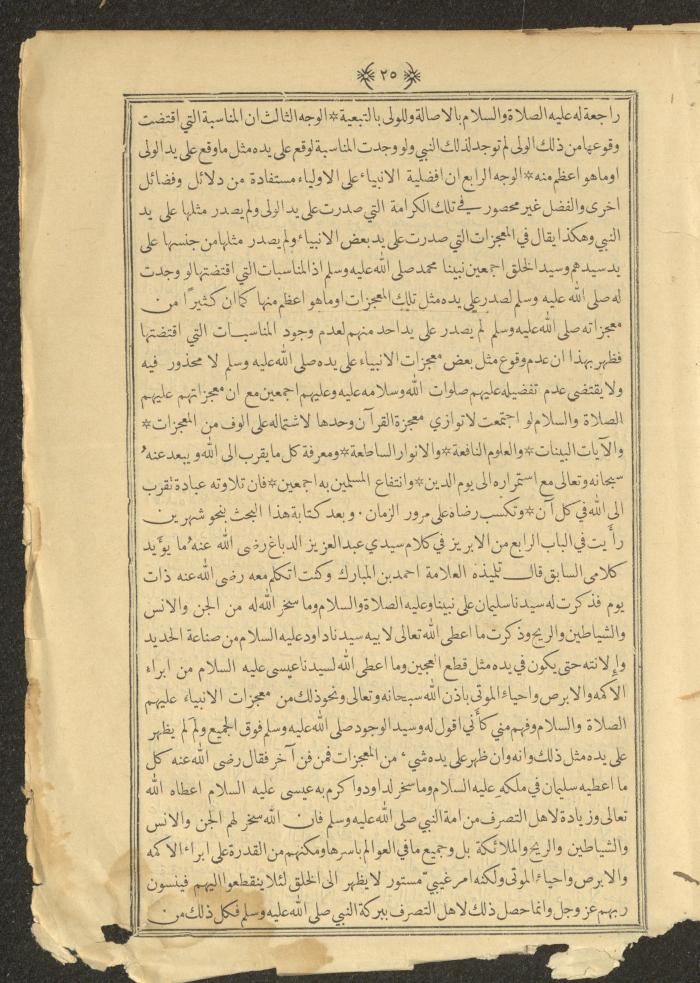 ٢٥
راجعة له عليه الصلاة والسلام بالاصالة وللولى بالتبعية * الوجه الثالث ان المناسبة التي اقتضت
وقوعها من ذلك الولى لم توجد لذلك النبي ولو وجدت المناسبة لوقع على يده مثل ما وقع على يد الولى
او ما هو اعظم منه * الوجه الرابع ان افضلية الانبياء على الاولياء مستفادة من دلائل وفضائل
اخرى والفضل غير محصور في تلك الكرامة التي صدرت على يد الولى ولم يصدر مثلها على يد
النبي وهكذا يقال في المعجزات التي صدرت على يد بعض الانبياء ولم يصدر مثلها من جنسها على
يد سيدهم وسيد الخلق اجمعين نبينا محمد صلى الله عليه وسلم اذ المناسبات التي اقتضتها لو وجدت
له صلى الله عليه وسلم لصدر على يده مثل تلك المعجزات او ما هو اعظم منها كما ان كثيرًا من
معجزاته صلى الله عليه وسلم لم يصدر على يد احد منهم لعدم وجود المناسبات التي اقتضتها
فظهر بهذا ان عدم وقوع مثل بعض معجزات الانبياء على يده صلى الله عليه وسلم لا محذور فيه
ولا يقتضى عدم تفضيله عليهم صلوات الله وسلامه عليه وعليهم اجمعين مع ان معجزاتهم عليهم
الصلاة والسلام لو اجتمعت لا توازي معجزة القرآن وحدها لاشتماله على الوف من المعجزات *
والآيات البينات * والعلوم النافعة * والانوار الساطعة * ومعرفة كل ما يقرب الى الله ويبعد عنه
سبحانه وتعالى مع استمراره الى يوم الدين * وانتفاع المسلمين به اجمعين * فان تلاوته عبادة تقرب
الى الله في كل آن * وتكسب رضاه على مرور الزمان . وبعد كتابة هذا البحث بنحو شهرين
رأيت في الباب الرابع من الابريز في كلام سيدي عبد العزيز الدباغ رضى الله عنه ما يؤيد
كلامى السابق قال تلميذه العلامة احمد بن المبارك وكنت اتكلم معه رضى الله عنه ذات
يوم فذكرت له سيدنا سليمان على نبينا وعليه الصلاة والسلام وما سخر الله له من الجن والانس
والشياطين والريح وذكرت ما اعطى الله تعالى لابيه سيدنا داود عليه السلام من صناعة الحديد
وإلانته حتى يكون في يده مثل قطع العجين وما اعطى الله لسيدنا عيسى عليه السلام من ابراء
الاكمه والابرص واحياء الموتى باذن الله سبحانه وتعالى ونحو ذلك من معجزات الانبياء عليهم
الصلاة والسلام وفهم منى كأني اقول له وسيد الوجود صلى الله عليه وسلم فوق الجميع ولمَ لم يظهر
على يده مثل ذلك وانه وان ظهر على يده شيء من المعجزات فمن فن آخر فقال رضى الله عنه كل
ما اعطيه سليمان في ملكه عليه السلام وما سخر لداود واكرم به عيسى عليه السلام اعطاه الله
تعالى وزيادة لاهل التصرف من امة النبي صلى الله عليه وسلم فان الله سخر لهم الجن والانس
والشياطين والريح والملائكة بل وجميع ما في العوالم باسرها ومكنهم من القدرة على ابراء الاكمه
والابرص واحياء الموتى ولكنه امر غيبيّ مستور لا يظهر الى الخلق لئلا ينقطعوا اليهم فينسون
ربهم عز وجل وانما حصل ذلك لاهل التصرف ببركة النبي صلى الله عليه وسلم فكل ذلك من